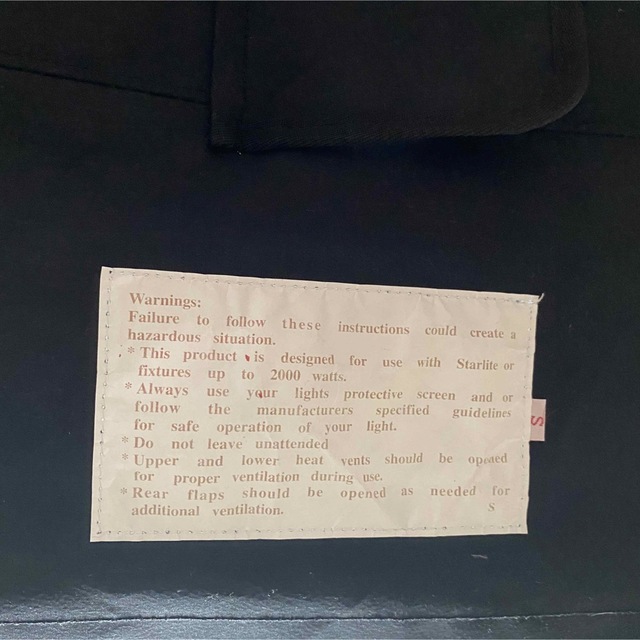 Warnings:
Failure to follow these instructions could create a
hazardous situation.
* This product is designed for use with Starlite or
fixtures up to 2000 watts.
* Always use your lights protective screen and or
follow the manufacturers specified guidelines
for safe operation of your light.
* Do not leave unattended
* Upper and lower heat vents should be opened
for proper ventilation during use.
* Rear flaps should be opened as needed for
additional ventilation. S
S